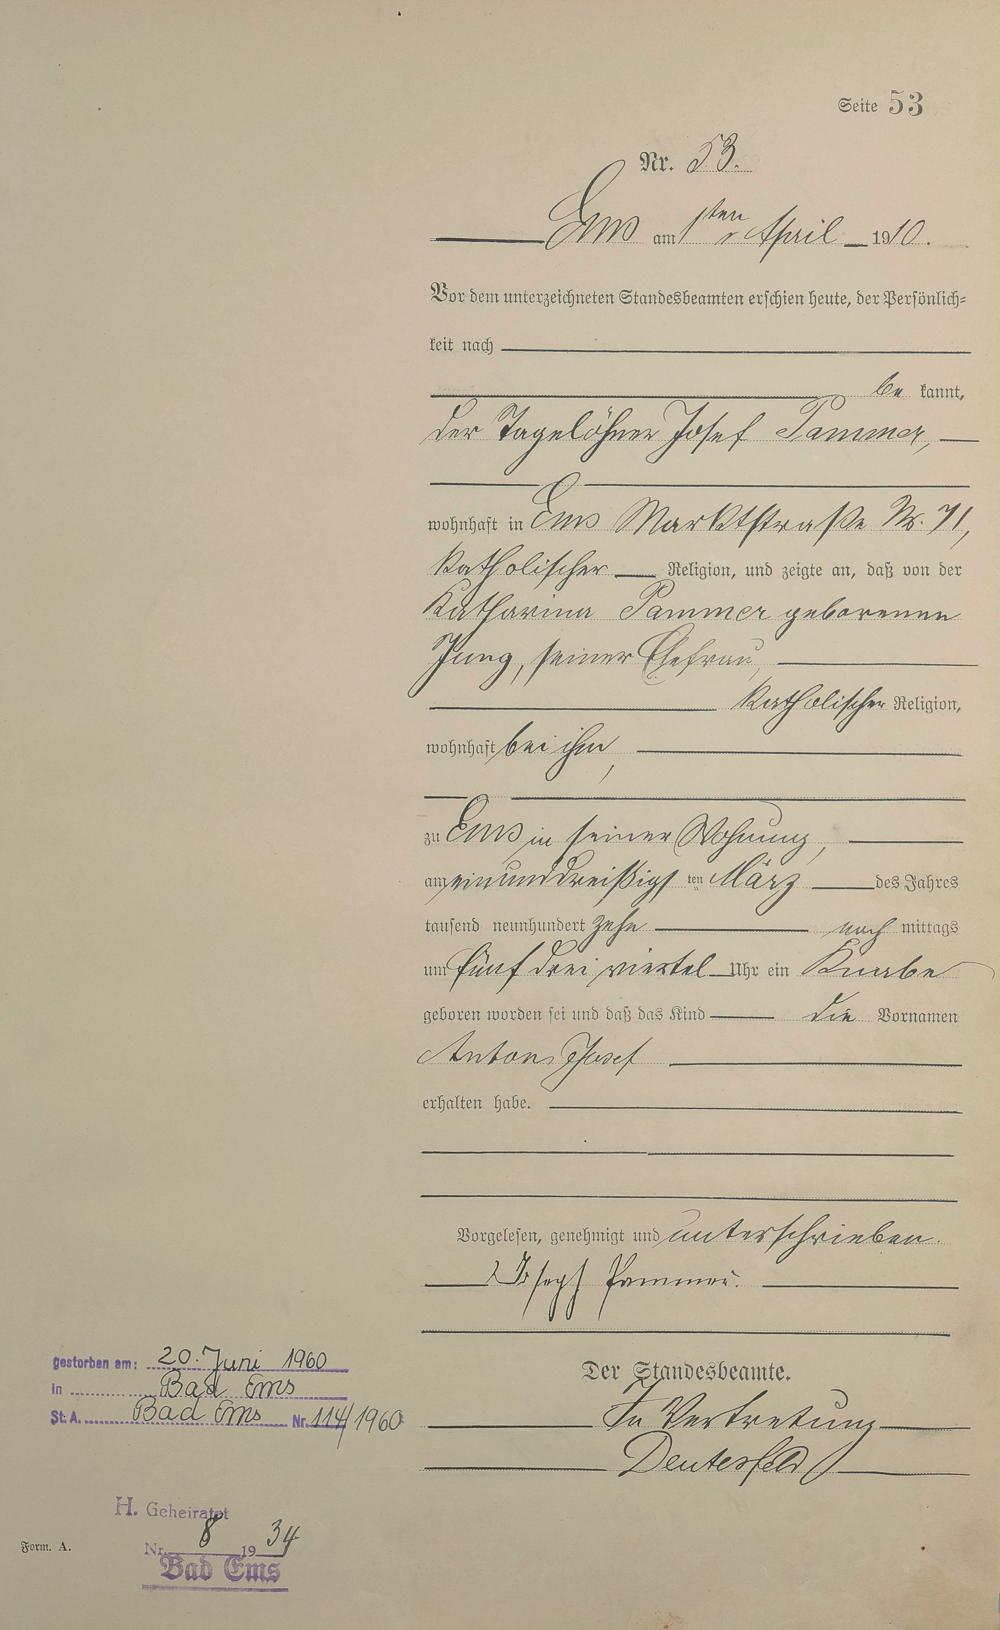 Seite 53
Nr. 53.
Ems am 1ten April 1910.
Vor dem unterzeichneten Standesbeamten erschien heute, der Persönlich=
keit nach
be kannt,
der Tagelöhner Josef Pammer,
wohnhaft in Ems Marktstraße Nr. 71,
katholischer Religion, und zeigte an, daß von der
Katharina Pammer geborenen
Jung, seiner Ehefrau,
katholischer Religion,
wohnhaft bei ihm,
zu Ems in seiner Wohnung,
am einunddreißigsten März des Jahres
tausend neunhundert zehn nach mittags
um fünf drei viertel Uhr ein Knabe
geboren worden sei und daß das Kind die Vornamen
Anton Josef
erhalten habe.
Vorgelesen, genehmigt und unterschrieben.
Joseph Pammer.
Der Standesbeamte.
In Vertretung
gestorben am: 20. Juni 1960
in Bad Ems
St. A. Bad Ems Nr. 114/1960
H. Geheiratet
Nr. 8 1934
Bad Ems
Form. A.